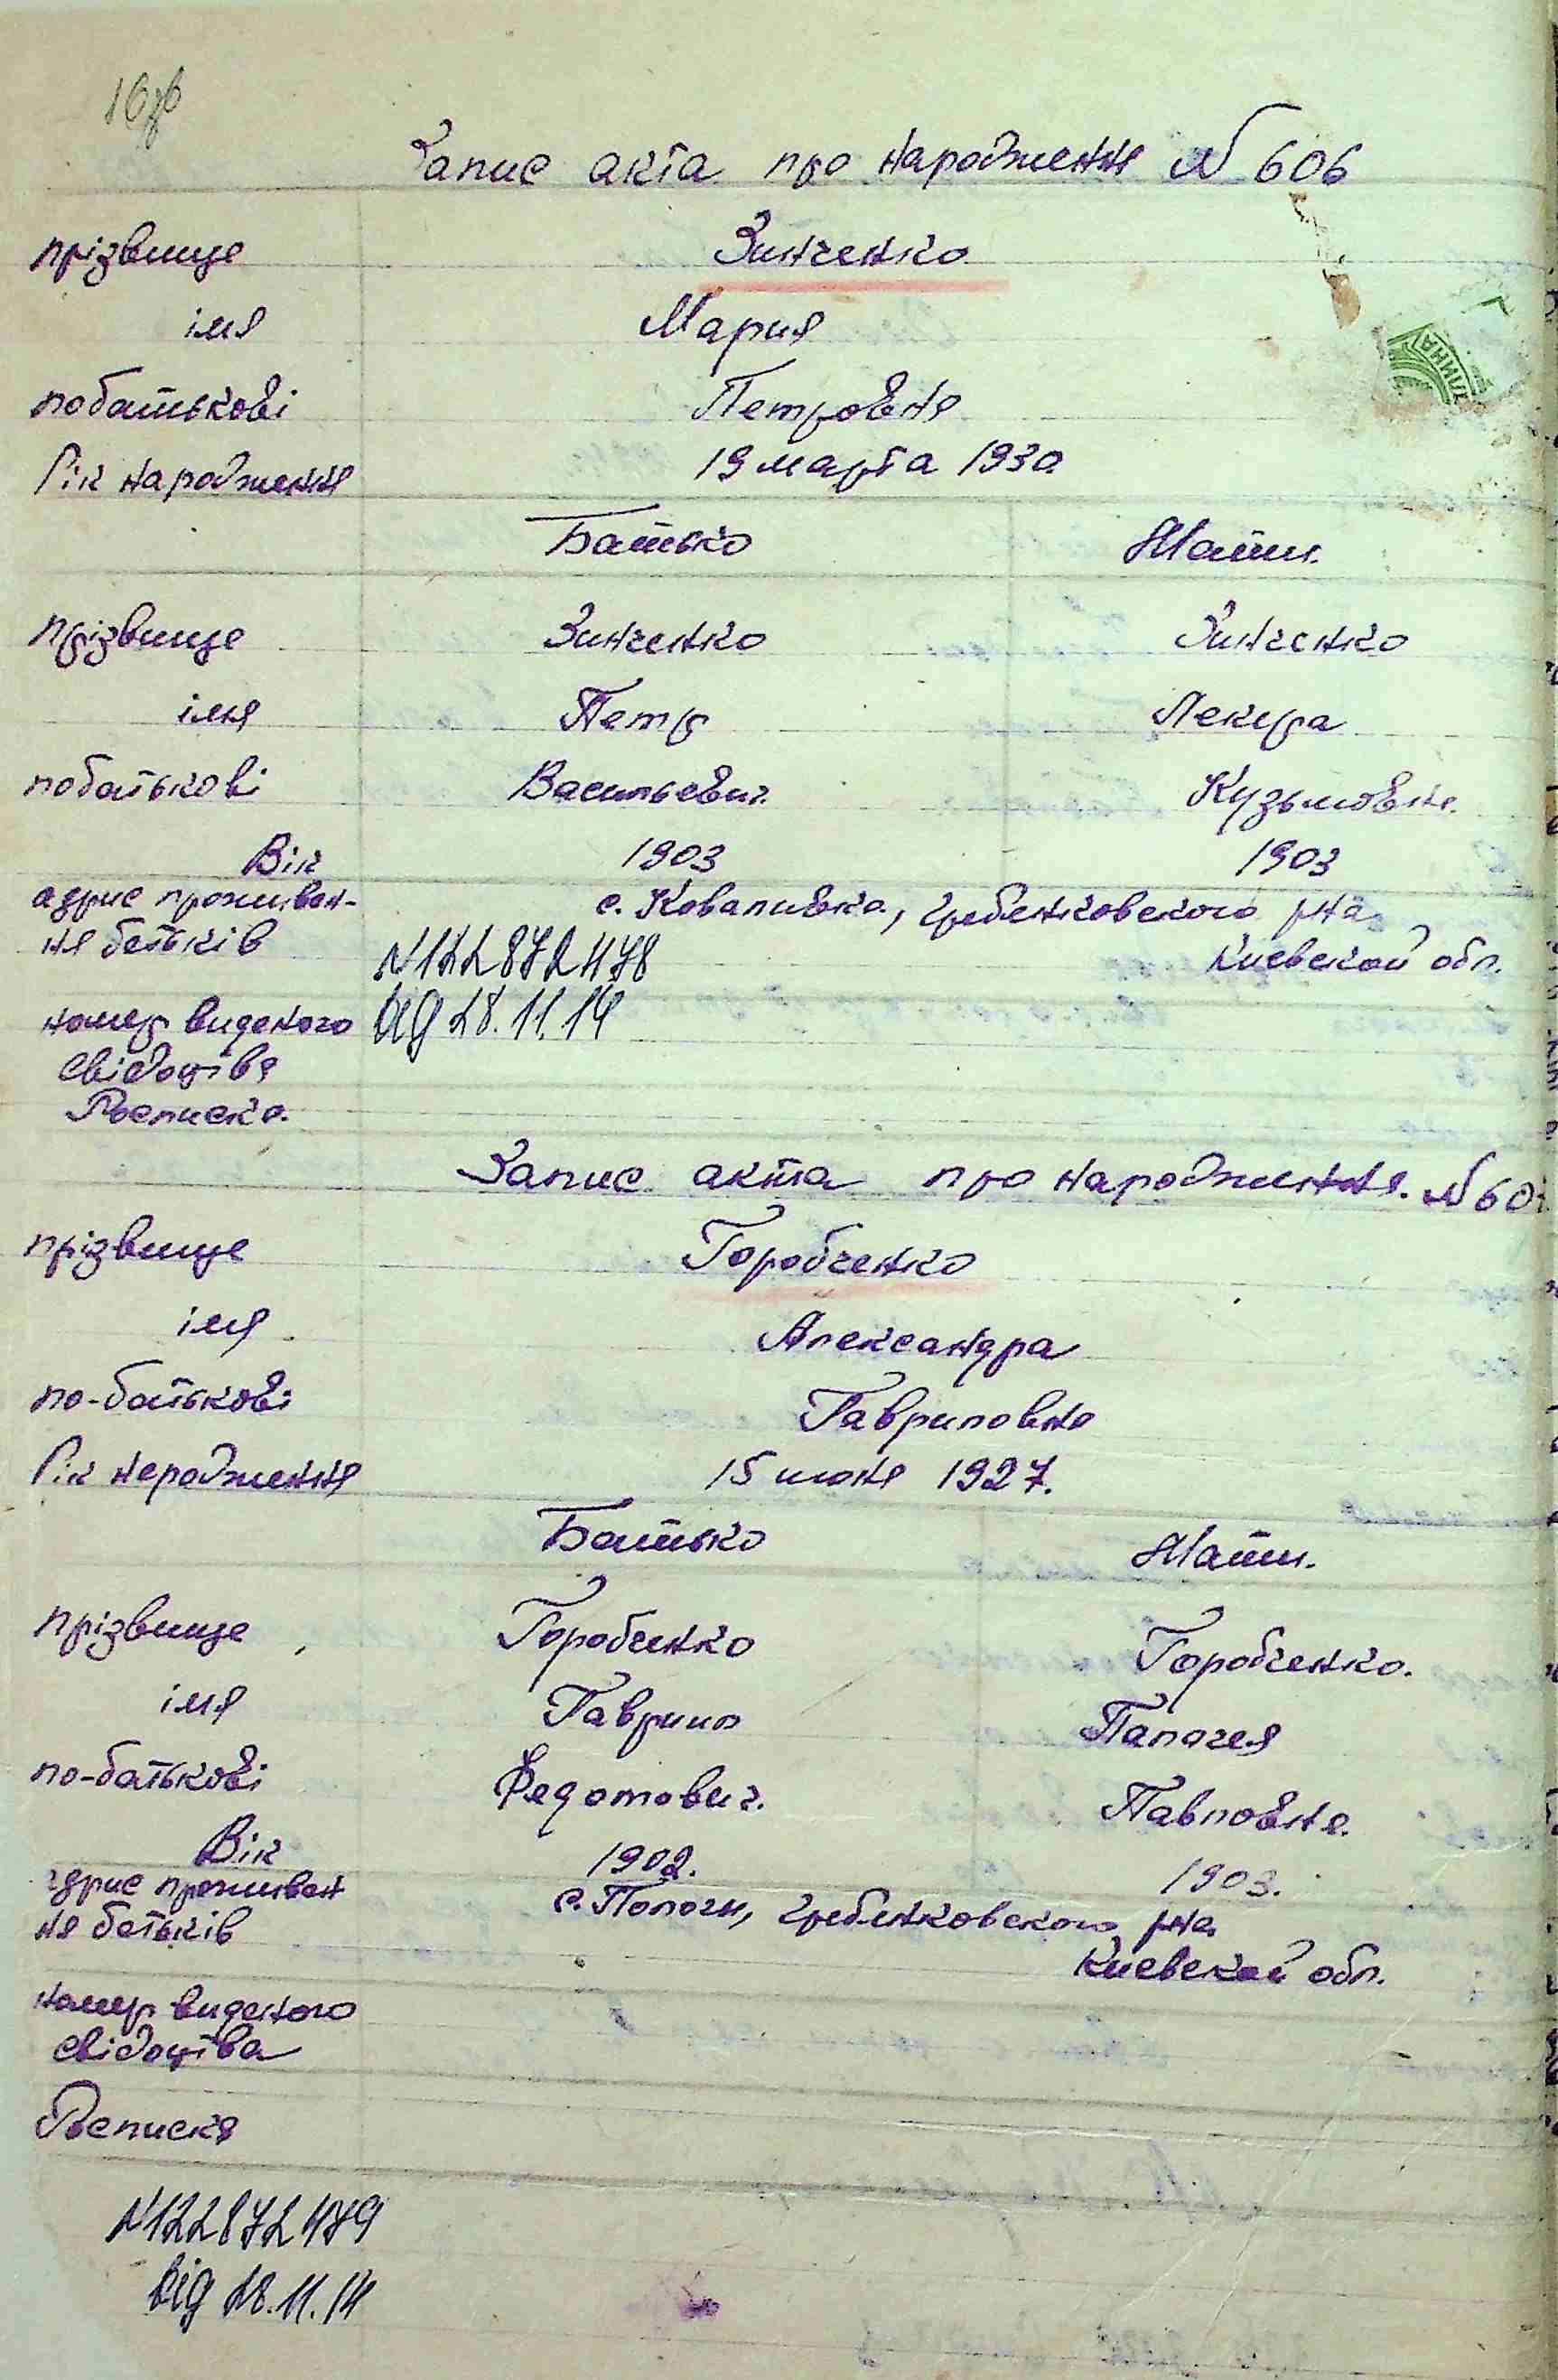 Запис акта про народження N 606
прізвище Зинченко
імя Мария
побатькові Петровна
Рік народження 19 марта 1930
Батько Мати.
прізвище Зинченко Зинченко
імя Петр Лекера
побатькові Васильевич. Кузьмовна.
Вік 1903 1903
адрис проживан- с. Коваливка, Гребенковского р-на
ня батьків N122872478 Киевской обл.
номер виданого від 28.11.14
свідоцтва
Росписка.
Запис акта про народження. N 60
прізвище Горобченко
імя Александра
по-батькові Гавриловна
Рік народження 15 июня 1927.
Батько Мати.
прізвище Горобченко Горобченко.
імя Гаврил Палагея
по-батькові Федотович. Павловна.
Вік 1902. 1903.
адрис проживан с. Пологи, Гребенковского р-на
ня батьків Киевской обл.
номер виданого
свідоцтва
Росписка
N122872479
від 28.11.14